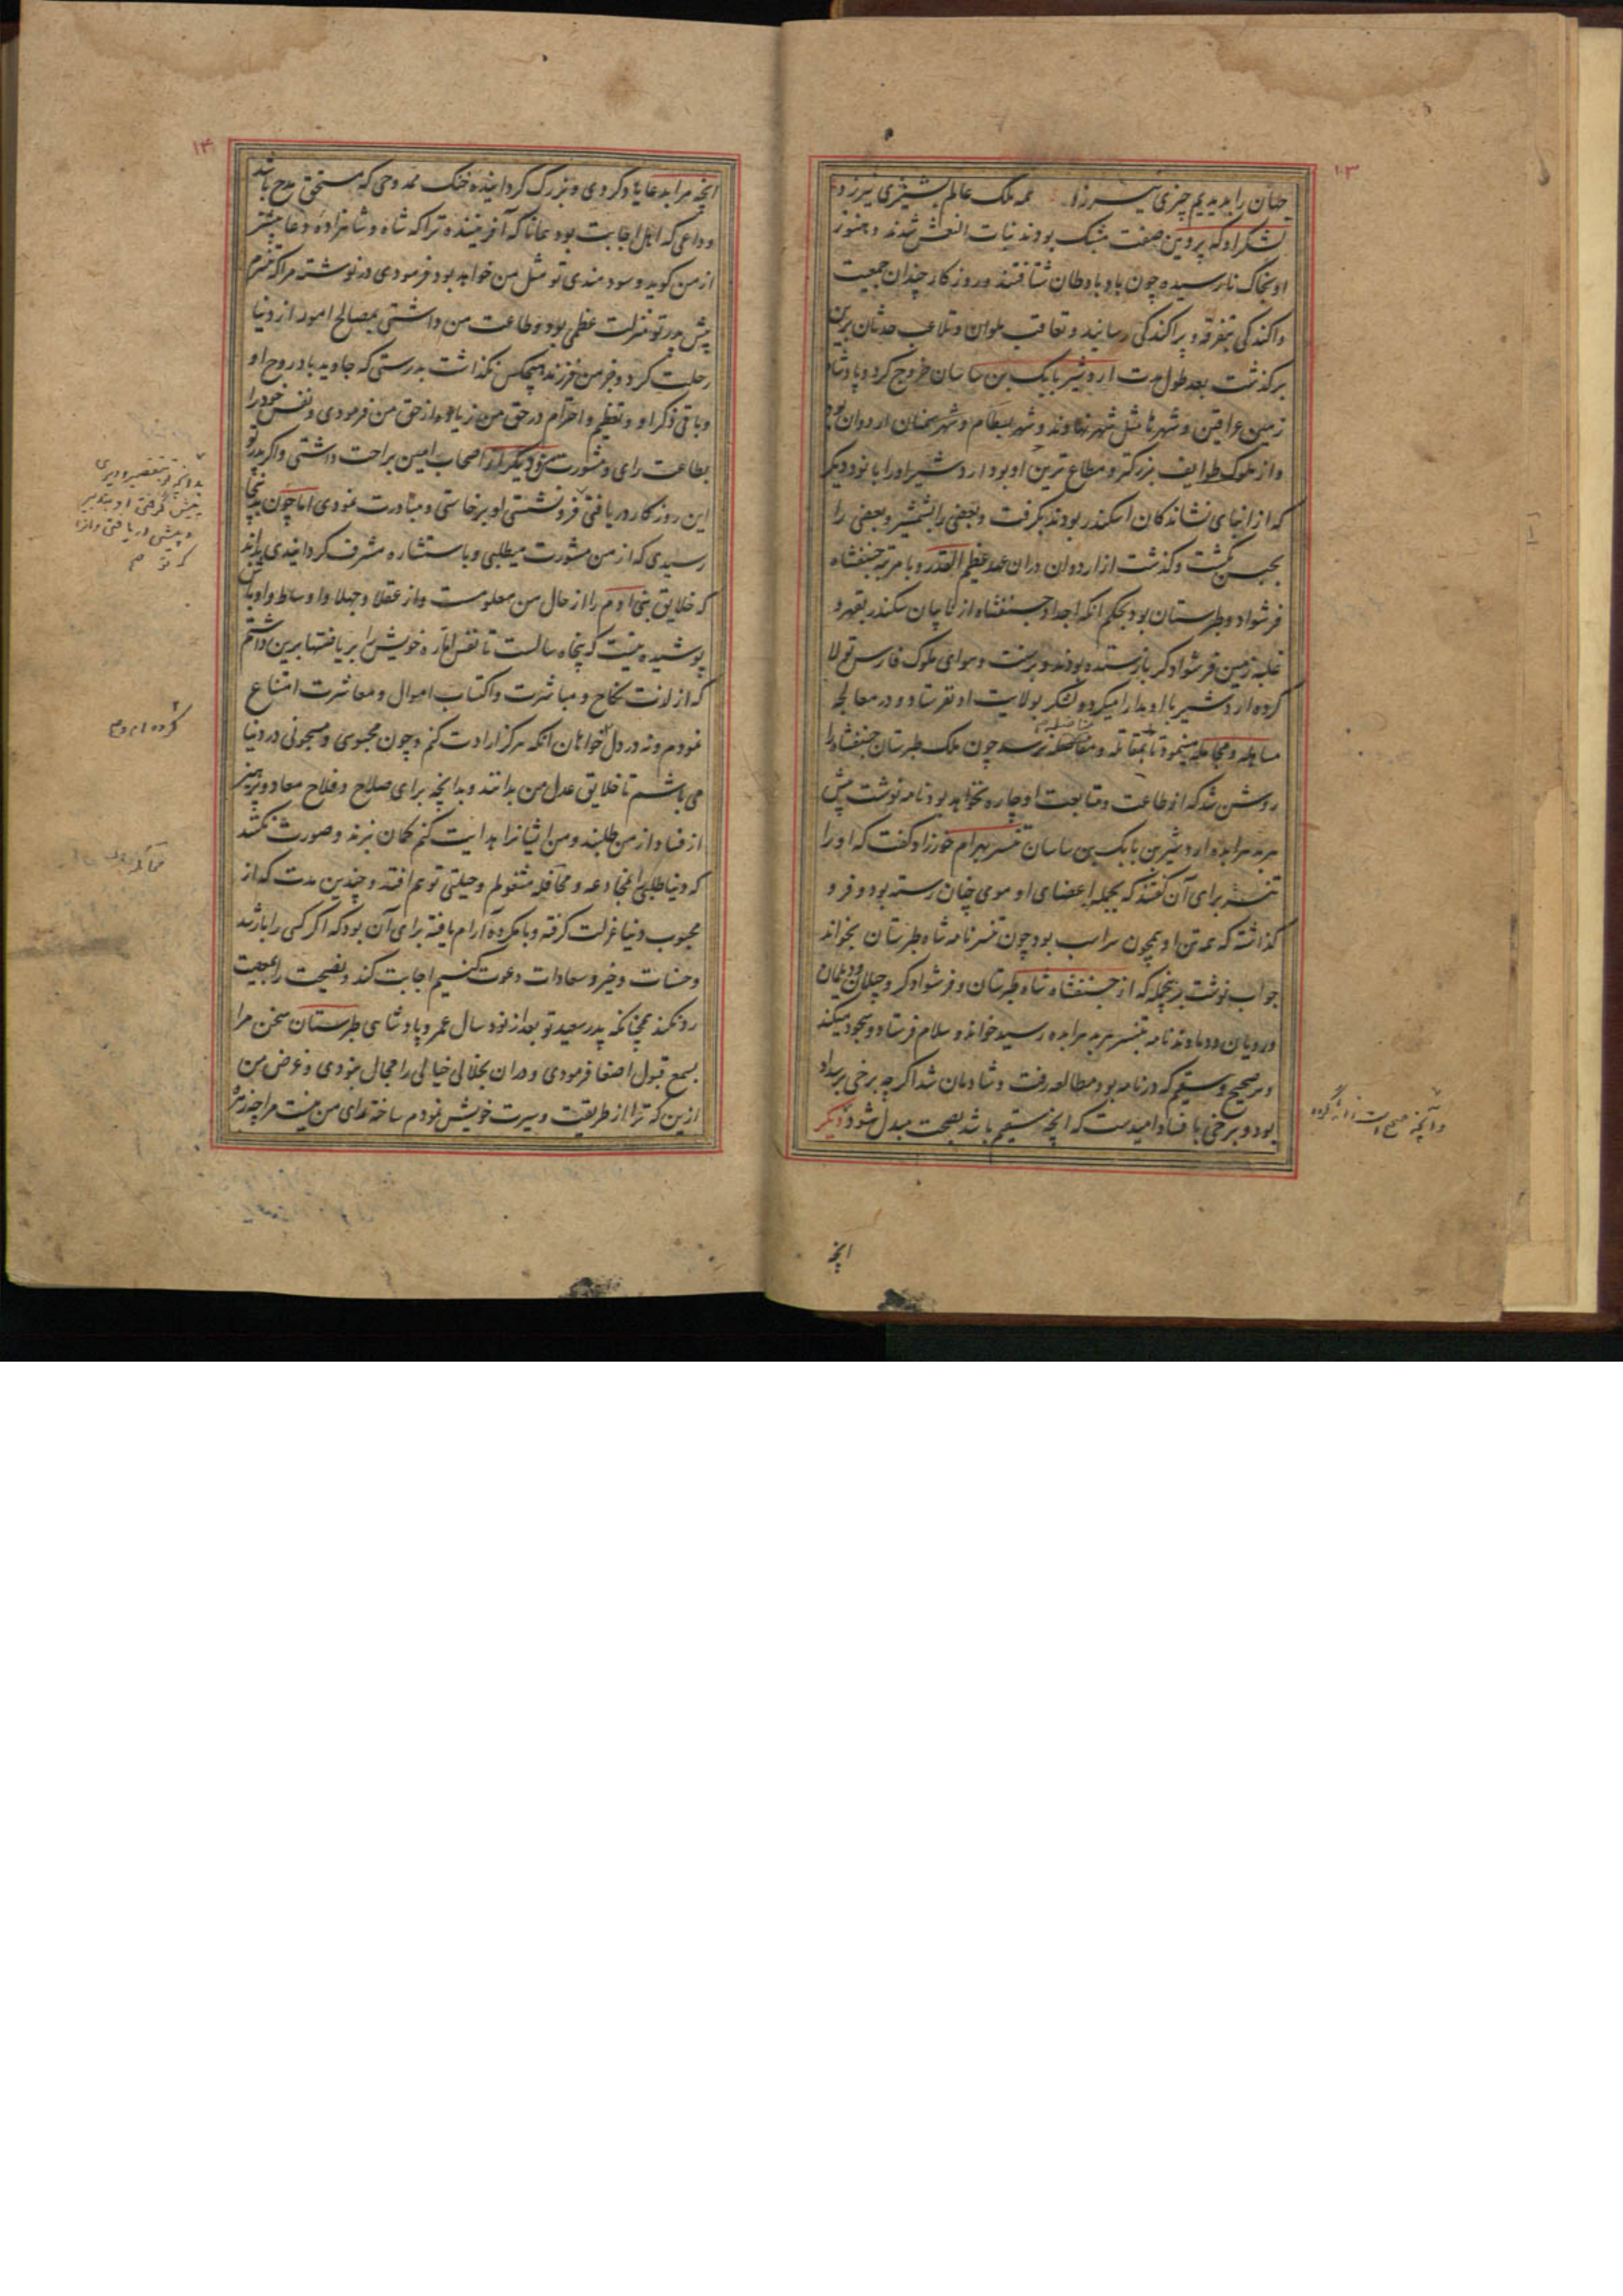 ۱۳
جهان را بدیدیم چیزی نیرزد همه ملک عالم پشیزی نیرزد و
لشکر او که پروین صفت مشبک بودند بنات النعش شدند و هنوز
او بخاک نارسیده چون باد باوطان شتافتند و روزگار چندان جمعیت
واکندگی بتفرقه و پراکندگی رسانید و تعاقب ملوان و تلاعب حدثان برین
برگذشت بعد طول مدت اردشیر بابک بن ساسان خروج کرد و پادشاه
زمین عراقین و شهرها مثل شهر نهاوند و شهر بسطام و شهر سمنان اردوان بود
و از ملوک طوایف بزرگتر و مطاع ترین او بود اردشیر او را با نود دیگر
که از ابنای نشاندگان اسکندر بودند بگرفت و بعضی را بشمشیر و بعضی را
بحبس بکشت و گذشت از اردوان دران عهد عظیم القدر و با مرتبه جشنفشاه
فرشواد و طبرستان بود بحکم آنکه اجداد جشنفشاه از نایبان سکندر بقهر و
غلبه زمین فرشوادگر بازستده بودند و بر سنت و هوای ملوک فارس تولا
کرده اردشیر با او مدارا میکرد و لشکر بولایت او نفرستاد و در معالجه
مساهله و مجامله مینمود تا بمقاتله و مناضله نرسد چون ملک طبرستان جشنفشاه را
روشن شد که از طاعت و متابعت او چاره نخواهد بود نامه نوشت پیش
هربد هرابده اردشیر بن بابک بن ساسان تنسر بهرام خورزاد گفت که او را
تنسر برای آن گفتند که بجمله اعضای او موی چنان رسته بود و فرو
گذاشته که همه تن او همچون سر اسب بود چون تنسر نامه شاه طبرستان بخواند
جواب نوشت برینجمله که از جشنفشاه شاه طبرستان و فرشوادگر و جیلان و دیلمان
و رویان و دماوند نامه بتنسر هربد هرابده رسید خواند و سلام فرستاد و سجود میکند
و هر صحیح و سقیم که در نامه بود مطالعه رفت و شادمان شد اگر چه برخی بر سداد
بود و برخی با فساد امیدست که آنچه سقیم باشد بصحت مبدل شود دیگر
آنچه
۱۴
آنچه مرا بدعا یاد کردی و بزرگ گردانیده خنک ممدوحی که مستحق مدح باشد
و داعی که اهل اجابت بود همانا که آفریننده ترا که شاه و شاهزاده دعا بیشتر
از من گوید و سودمندی تو مثل من خواهد بود فرمودی در نوشته مرا که تنسرم
پیش پدر تو منزلت عظمی بود و طاعت من داشتی بمصالح امور از دنیا
رحلت کرد و جز من فرزند هیچکس نگذاشت بدرستی که جاوید باد روح او
و باقی ذکر او و تعظیم و احترام در حق من زیاده از حق من فرمودی و نفس خود را
بطاعت رای و مشورت من و دیگر اصحاب امین براحت داشتی و اگر پدر تو
این روزگار دریافتی فرو نشستی او برخاستی و مبادرت نمودی اما چون بدینجا
رسیدی که از من مشورت میطلبی و باستشاره مشرف گردانیدی بداند
که خلایق بنی آدم را از حال من معلومست و از عقلا و جهلا و اوساط و اوباش
پوشیده نیست که پنجاه سالست تا نفس اماره خویش را بریاضتها برین داشتم
که از لذت نکاح و مباشرت و اکتساب اموال و معاشرت امتناع
نمودم و نه در دل خواهان آنکه هرگز ارادت کنم و چون محبوسی و مسجونی در دنیا
می باشم تا خلایق عدل من بدانند و بدانچه برای صلاح و فلاح معاد و پرهیز
از فساد از من طلبند و من ایشانرا هدایت کنم گمان نبرند و صورت نکنند
که دنیا طلبی را بمخادعه و مخافله مشغولم و حیلتی توهم افتد و چندین مدت که از
محبوب دنیا عزلت گرفته و با مکروه آرام یافته برای آن بود که اگر کسی را بارشد
و حسنات و خیر و سعادات دعوت کنیم اجابت کند و نصیحت را بمعصیت
رد نکند همچنانکه پدر سعید تو بعد از نود سال عمر و پادشاهی طبرستان سخن مرا
بسمع قبول اصغا فرمودی و دران بخلالی خیالی را مجال نبودی و غرض من
ازین که ترا از طریقت و سیرت خویش نمودم ساخته رای من نیست مرا چه زهره
کرده ام و م